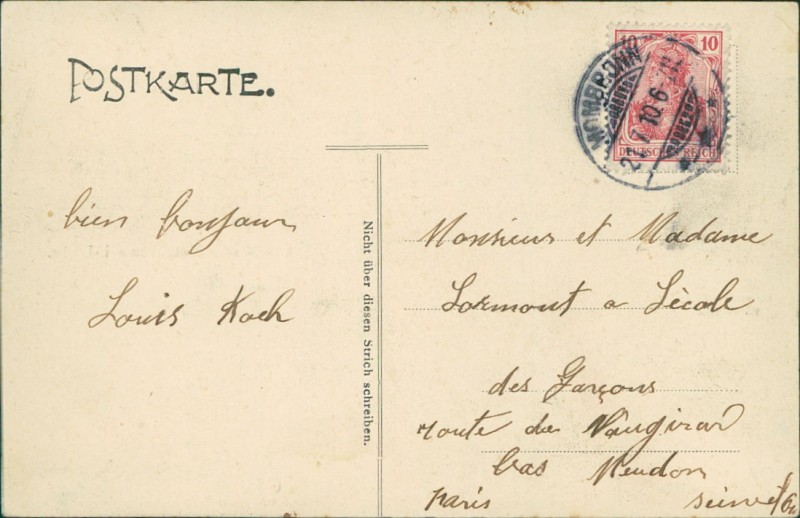 POSTKARTE.
10
DEUTSCHES REICH
MOMBRONN
bien bonjour
Louis Koch
Nicht über diesen Strich schreiben.
Monsieur et Madame
Lormont a Lécole
des Garçons
route de Vaugirar
bas Meudon
Paris